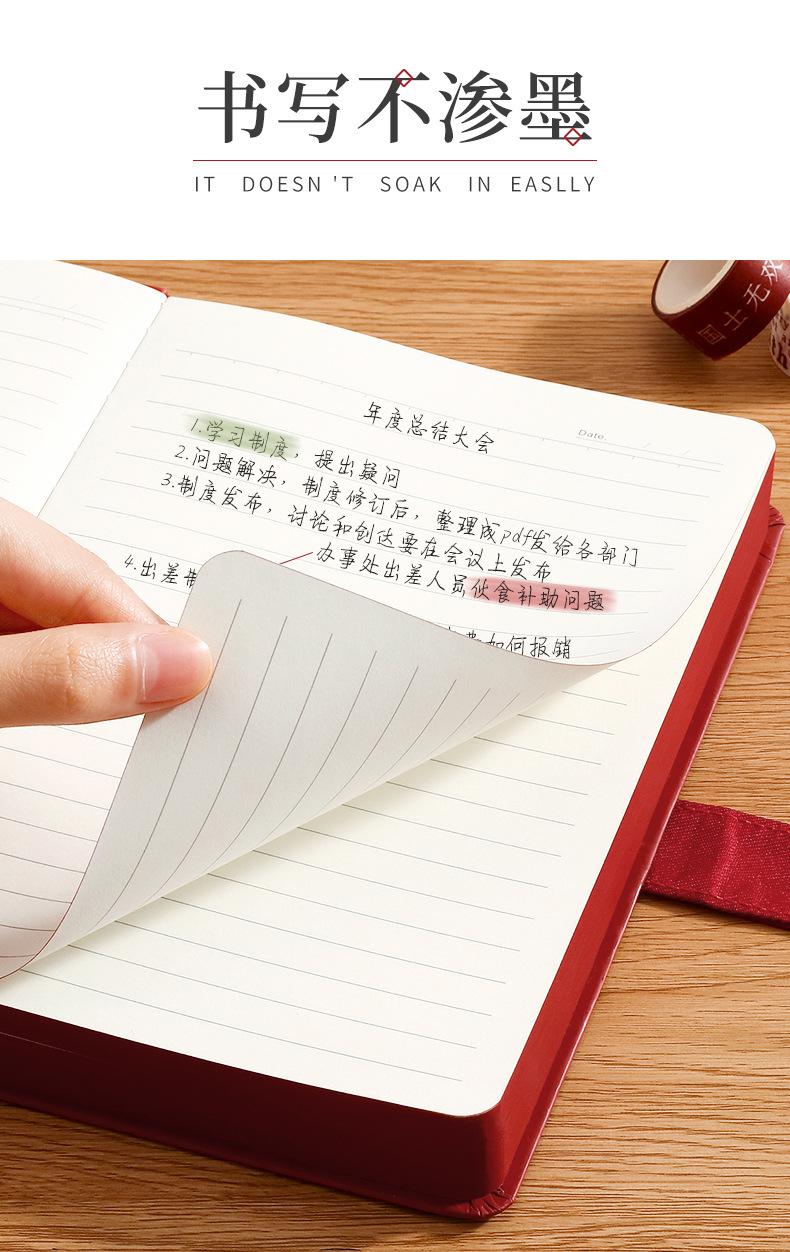 书写不渗墨
IT DOESN'T SOAK IN EASLLY
国士无双
Date.
年度总结大会
1.学习制度，提出疑问
2.问题解决，制度修订后，整理成pdf发给各部门
3.制度发布，讨论和创达要在会议上发布
办事处出差人员伙食补助问题
4.出差制
如何报销